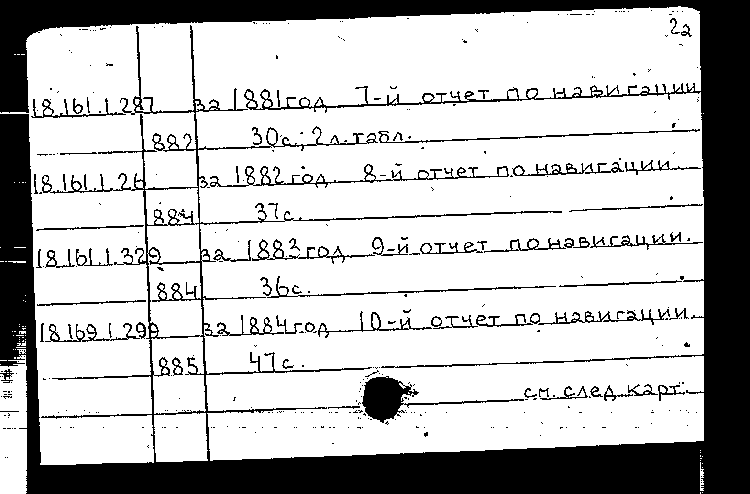 2а
18.161.1.287 за 1881 год 7-й отчет по навигации
1882 30с.; 2л. табл.
18.161.1.26 за 1882 год 8-й отчет по навигации.
1884 37с.
18.161.1.329 за 1883 год 9-й отчет по навигации.
1884 36с.
18.169.1.299 за 1884 год 10-й отчет по навигации.
1885 47с.
см. след. карт.